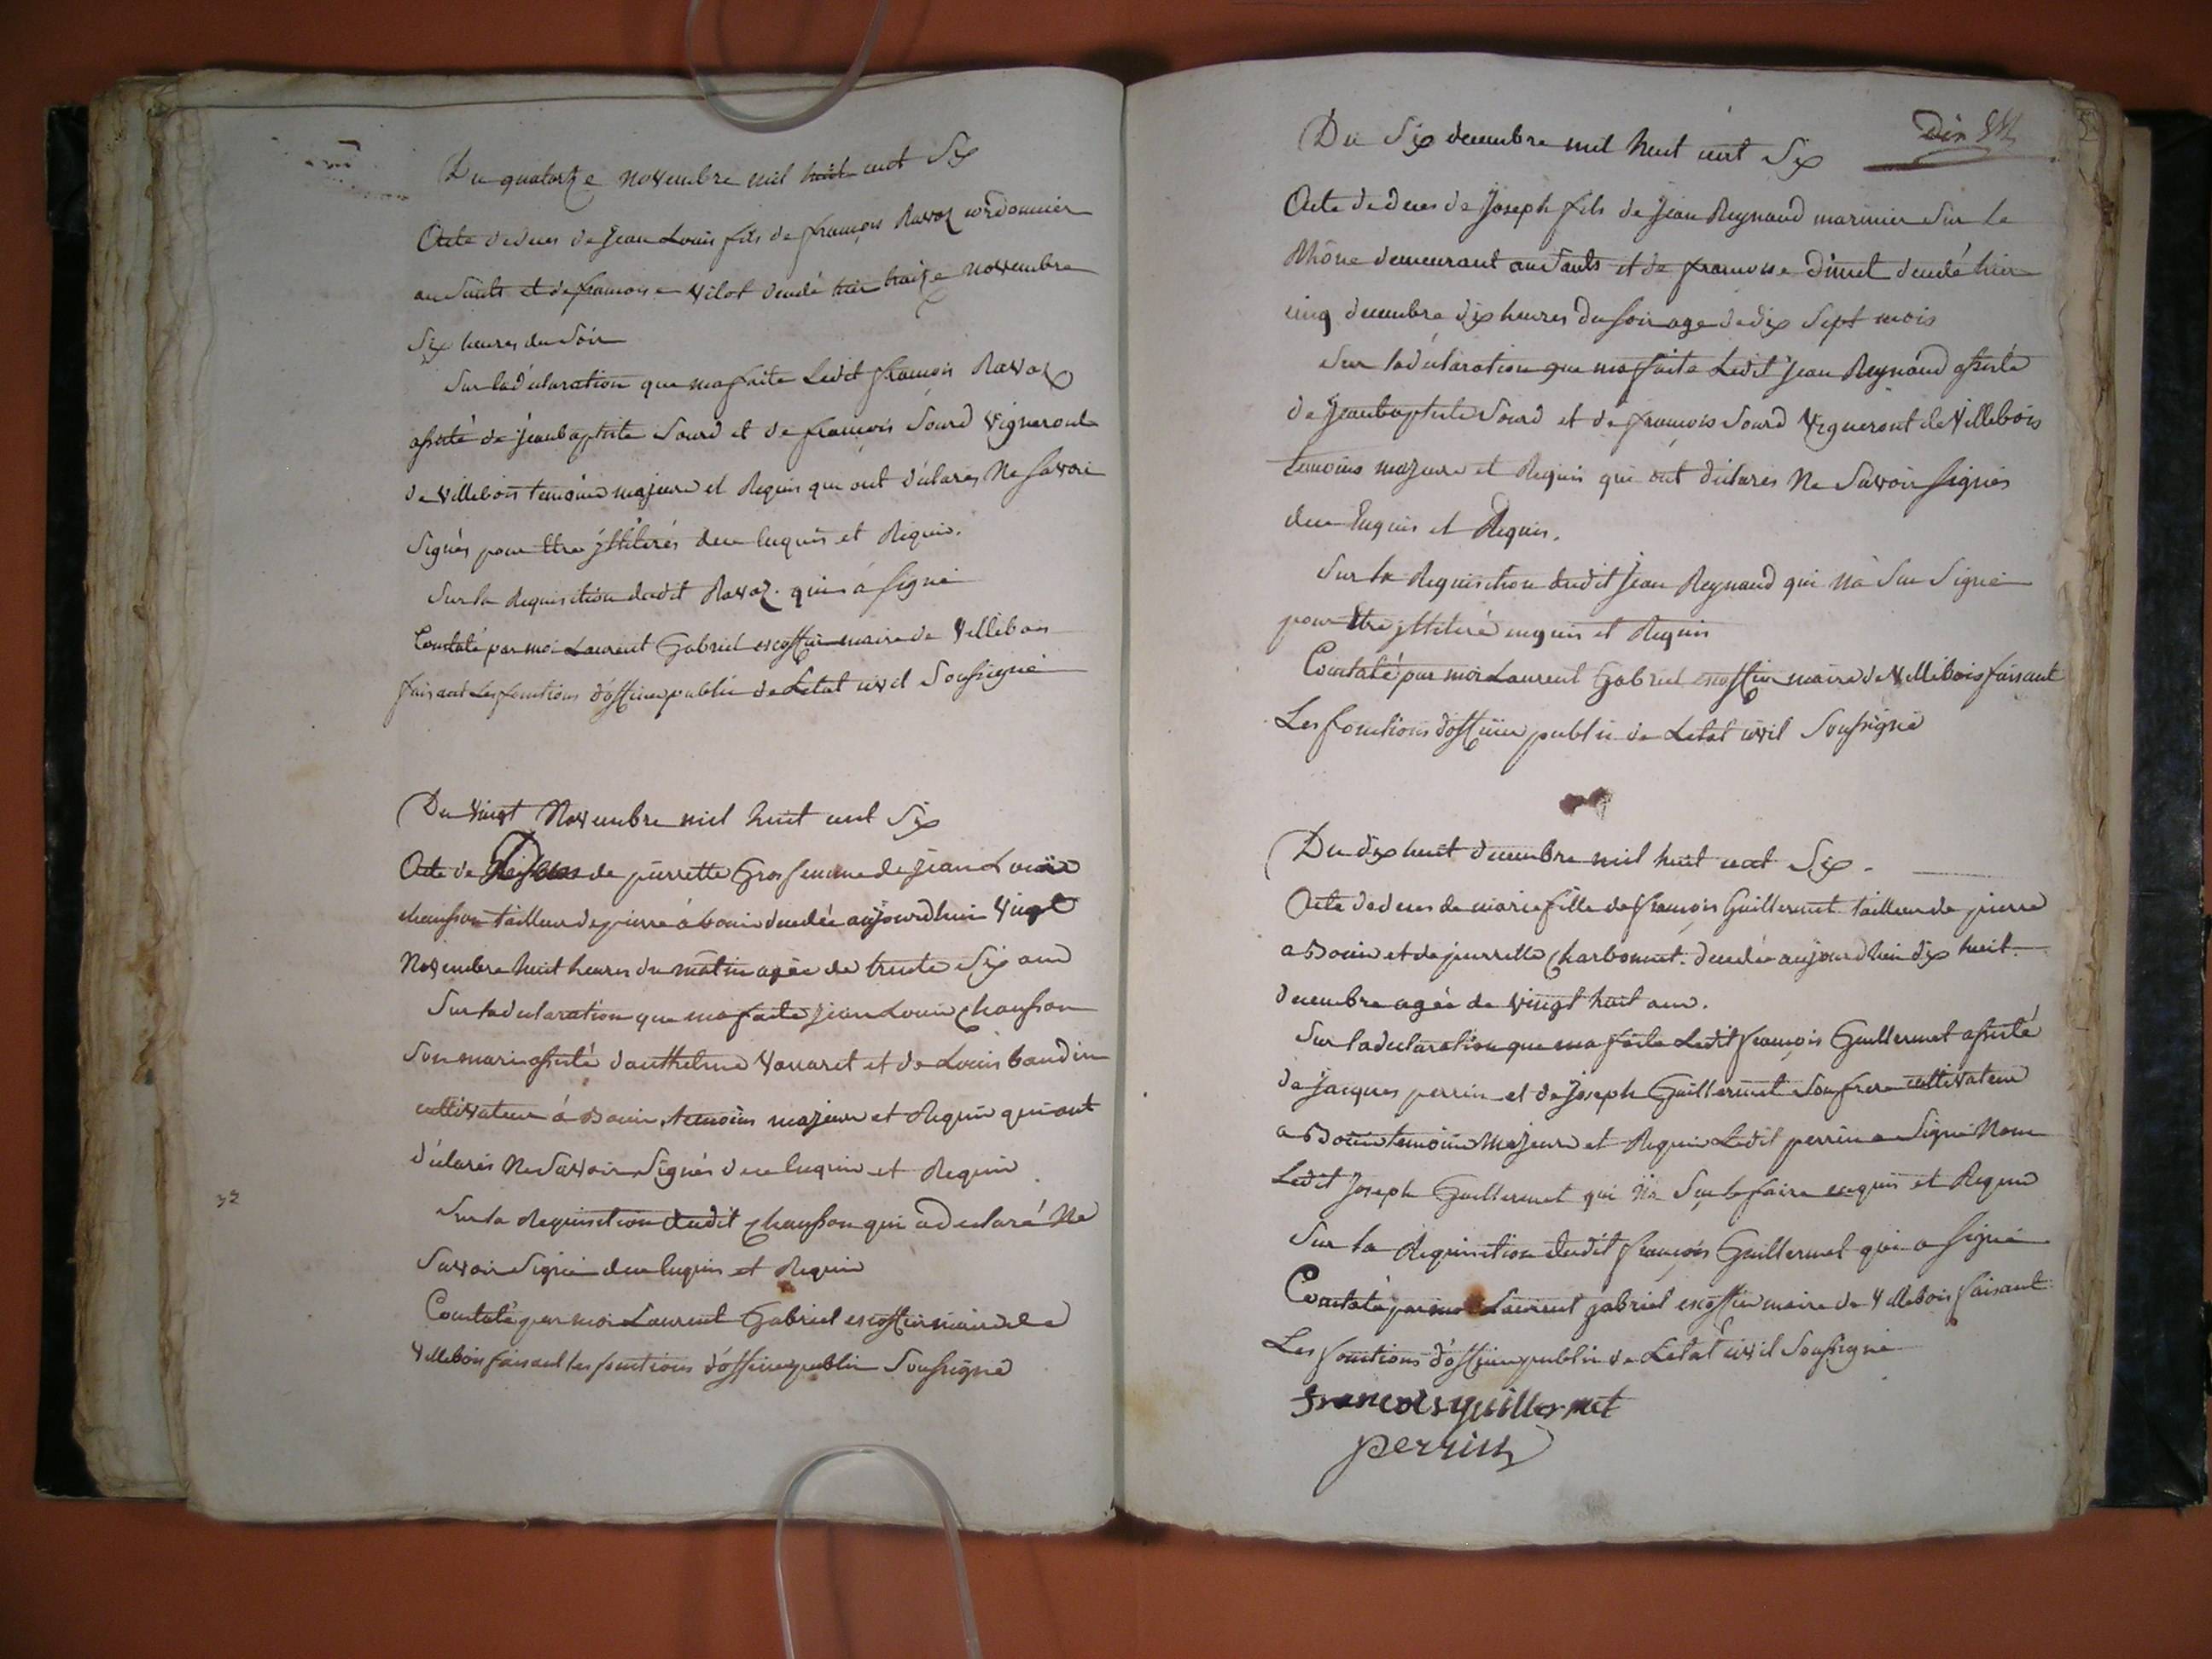 Du quatorze novembre mil huit cent Six
Acte de deces de Jean Louis fils de françois Ravoz cordonnier
au Saults et de francoise vilot decedé hier traize novembre
Six heures du Soir
Sur la déclaration que ma faite Ledit françois Ravoz
assisté de jeanbaptiste Sourd et de françois Sourd vigneront
de villebois temoins majeurs et Requis qui ont déclarés Ne Savoir
Signés pour être jlliterés de ce enquis et Requis.
Sur la Requisition dudit Ravoz. qui à Signé
Contaté par moi Laurent Gabriel escoffier maire de Villebois
faisant Les fonctions d'officier public de Letat civil Soussigné
Du vingt Novembre mil huit cent Six
Acte de Deces de pierrette Gros femme de Jean Louis
chausson tailleur de pierre à bouis decedée aujourdhui vingt
Novembre huit heures du matin agée de trente Six ans
Sur la declaration que ma faite jean Louis chausson
Son mari assisté danthelme vavaret et de Louis baudin
cultivateur à Bouis, temoins majeurs et Requis qui ont
déclarés Ne Savoir Signés de ce enquis et Requis
Sur la Requisition dudit chausson qui a declaré Ne
Savoir Signé de ce enquis et Requis
32
Contaté par moi Laurent Gabriel escoffier maire de
villebois faisant les fonctions d'officier public Soussigné
Du Six decembre mil huit cent Six
Dix
Acte de deces de Joseph fils de Jean Reynaud marinier Sur le
Rhône demeurant au Saults et de francoise Dimet decedé hier
cinq decembre dix heures du Soir age de dix Sept mois
Sur la déclaration que ma faite Ledit Jean Reynaud assisté
de Jeanbaptiste Sourd et de françois Sourd vigneront de Villebois
temoins majeurs et Requis qui ont déclarés Ne Savoir Signés
de ce Enquis et Requis.
Sur la Requisition dudit Jean Reynaud qui Nà Su Signé
pour Etre jlliteré enquis et Requis
Contaté par moi Laurent Gabriel escoffier maire de Villebois faisant
Les fonctions d'officier public de Letat civil Soussigné
Du dix huit decembre mil huit cent Six.
Acte de deces de marie fille de françois Guillermet tailleur de pierre
a Bouis et de pierrette charbonnet. decedée aujourdhui dix huit
decembre agée de vingt huit ans.
Sur la declaration que ma faite Ledit françois Guillermet assisté
de jacques perrin et de Joseph Guillermet Son frere cultivateur
a Bouis temoins Majeurs et Requis Ledit perrin a Signé Non
Ledit Joseph Guillermet qui Na Su le faire enquis et Requis
Sur la Requisition dudit françois Guillermet qui a Signé
Contaté par moi Laurent gabriel escoffier maire de Villebois faisant
Les fonctions d'officier public de Letat civil Soussigné
francois guillermet
perrin